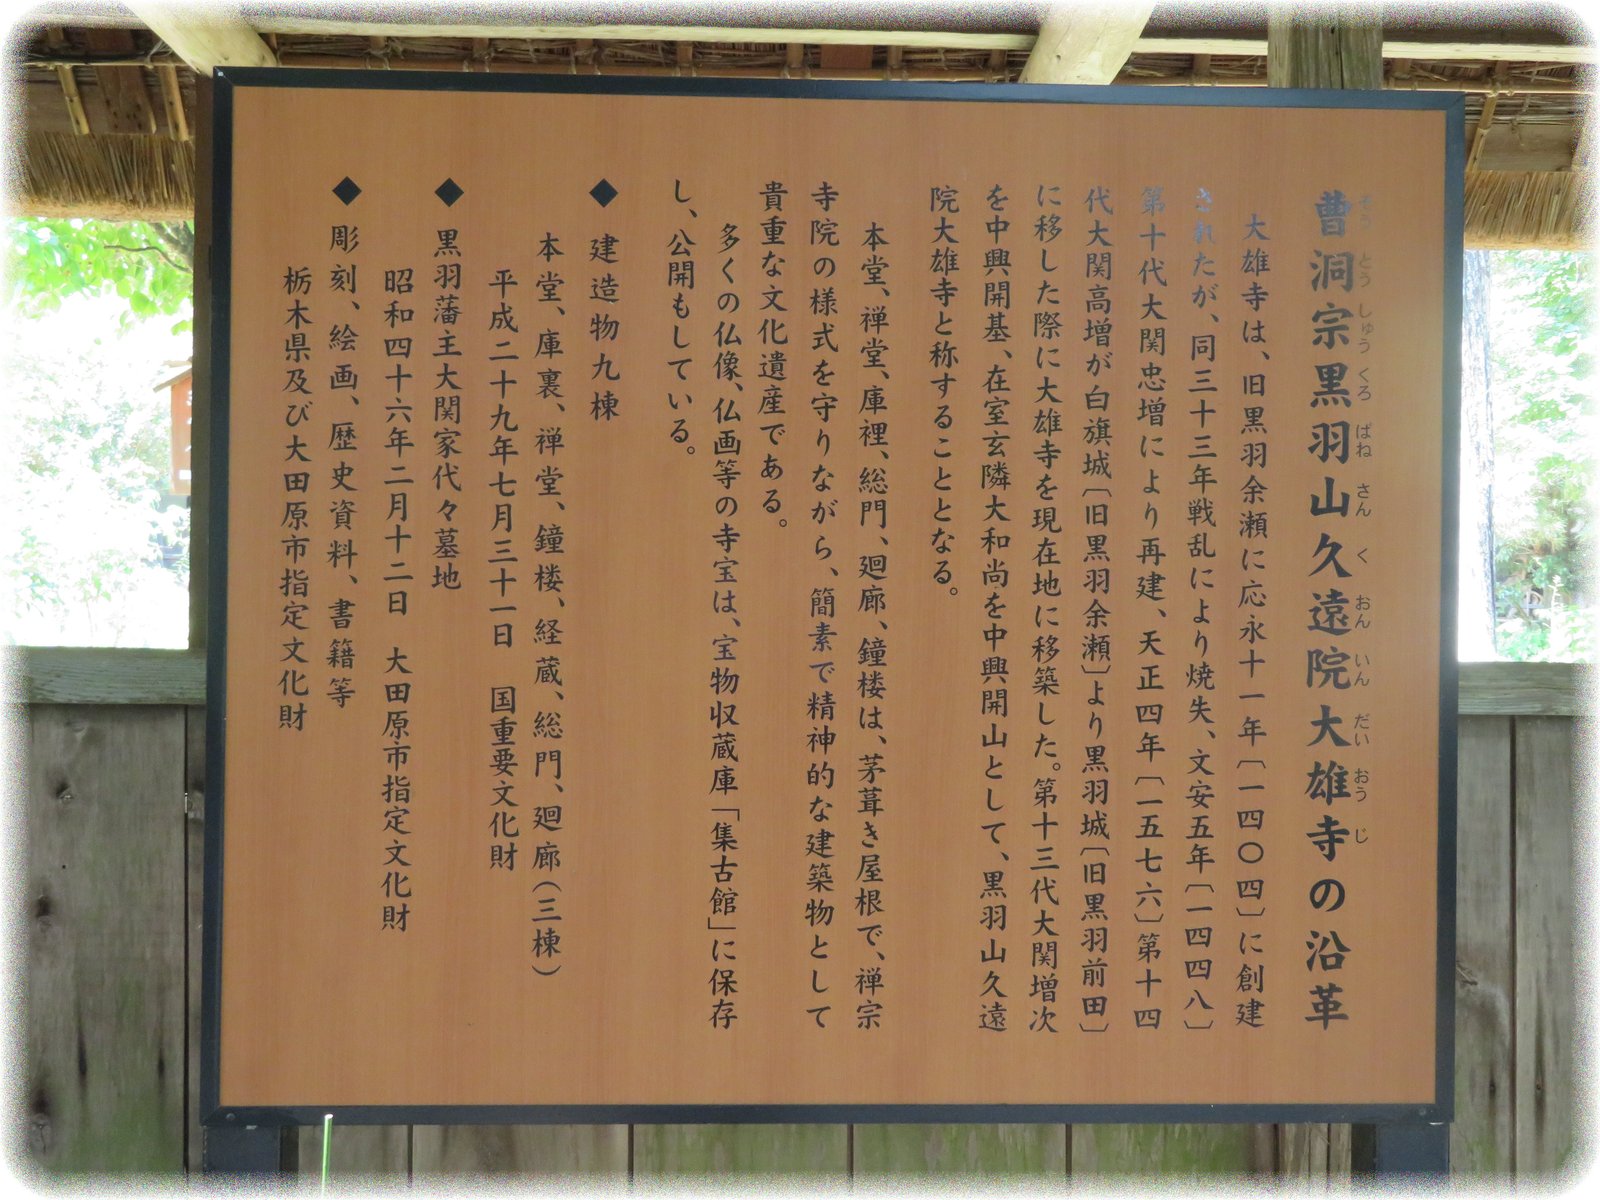 曹洞宗黒羽山久遠院大雄寺の沿革
そうとうしゅうくろばねさんくおんいんだいおうじ
大雄寺は、旧黒羽余瀬に応永十一年〔一四〇四〕に創建
されたが、同三十三年戦乱により焼失、文安五年〔一四四八〕
第十代大関忠増により再建、天正四年〔一五七六〕第十四
代大関高増が白旗城〔旧黒羽余瀬〕より黒羽城〔旧黒羽前田〕
に移した際に大雄寺を現在地に移築した。第十三代大関増次
を中興開基、在室玄隣大和尚を中興開山として、黒羽山久遠
院大雄寺と称することとなる。
本堂、禅堂、庫裡、総門、廻廊、鐘楼は、茅葺き屋根で、禅宗
寺院の様式を守りながら、簡素で精神的な建築物として
貴重な文化遺産である。
多くの仏像、仏画等の寺宝は、宝物収蔵庫「集古館」に保存
し、公開もしている。
◆ 建造物九棟
本堂、庫裏、禅堂、鐘楼、経蔵、総門、廻廊(三棟)
平成二十九年七月三十一日 国重要文化財
◆ 黒羽藩主大関家代々墓地
昭和四十六年二月十二日 大田原市指定文化財
◆ 彫刻、絵画、歴史資料、書籍等
栃木県及び大田原市指定文化財